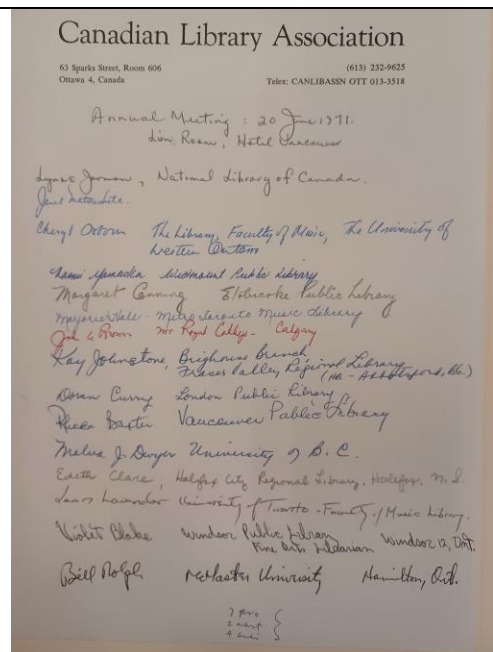 Canadian Library Association
63 Sparks Street, Room 606
Ottawa 4, Canada
(613) 232-9625
Telex: CANLIBASSN OTT 013-3518
Annual Meeting : 20 June 1971.
Lions Room, Hotel Vancouver
Lynne Jarman, National Library of Canada.
Cheryl Osborn The Library, Faculty of Music, The University of
Western Ontario
Westmount Public Library
Margaret Canning Etobicoke Public Library
Marjorie Hale Metro Toronto Music Library
Mt Royal College - Calgary
Kay Johnstone, Brighouse Branch
Fraser Valley Regional Library
(HQ - Abbotsford, BC.)
Doran Curry London Public Library
Rhoda Baxter Vancouver Public Library
Melva J. Dwyer University of B.C.
Edith Clare, Halifax City Regional Library, Halifax, N.S.
Lavender University of Toronto - Faculty of Music Library.
Violet Blake Windsor Public Library
Fine Arts Librarian Windsor 12, Ont.
Bill Rolph McMaster University Hamilton, Ont.